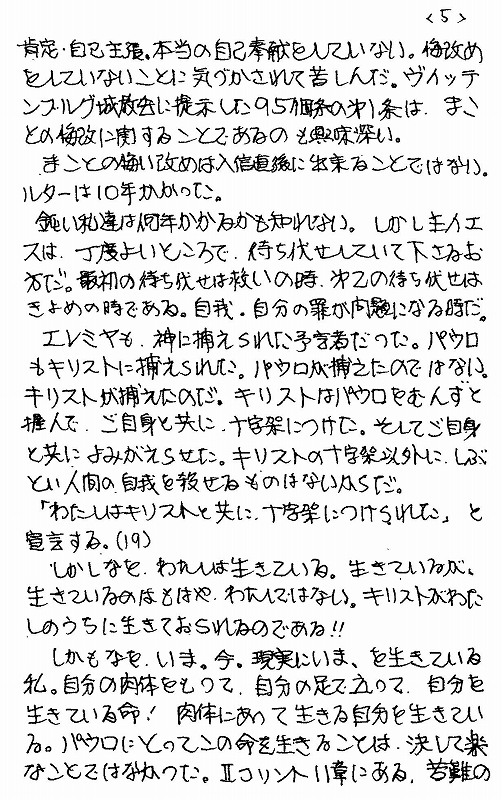 <5>
肯定・自己主張。本当の自己奉献をしていない。悔改め
をしていないことに気づかされて苦しんだ。ヴィッテ
ンブルグ城教会に提示した95個条の才1条は、まこ
との悔改に関することであるのも興味深い。
まことの悔い改めは入信直後に出来ることではない。
ルターは10年かかった。
鈍い私達は何年かかるかも知れない。しかし主イエ
スは、丁度よいところで、待ち伏せしていて下さるお
方だ。最初の待ち伏せは救いの時、才2の待ち伏せは
きよめの時である。自我・自分の罪が問題になる時だ。
エレミヤも、神に捕えられた予言者だった。パウロ
もキリストに捕えられた。パウロが捕えたのではない。
キリストが捕えたのだ。キリストはパウロをむんずと
握んで、ご自身と共に、十字架につけた。そしてご自身
と共によみがえらせた。キリストの十字架以外に、しぶ
とい人間の自我を殺せるものはないからだ。
「わたしはキリストと共に、十字架につけられた」と
宣言する。(19)
しかしなを、わたしは生きている。生きているが、
生きているのはもはや、わたしではない。キリストがわた
しのうちに生きておられるのである!!
しかもなを、いま。今。現実にいま、を生きている
私。自分の肉体をもって、自分の足で立って、自分を
生きている命! 肉体にあって生きる自分を生きてい
る。パウロにとってこの命を生きることは、決して楽
なことではなかった。Ⅱコリント11章にある、苦難の